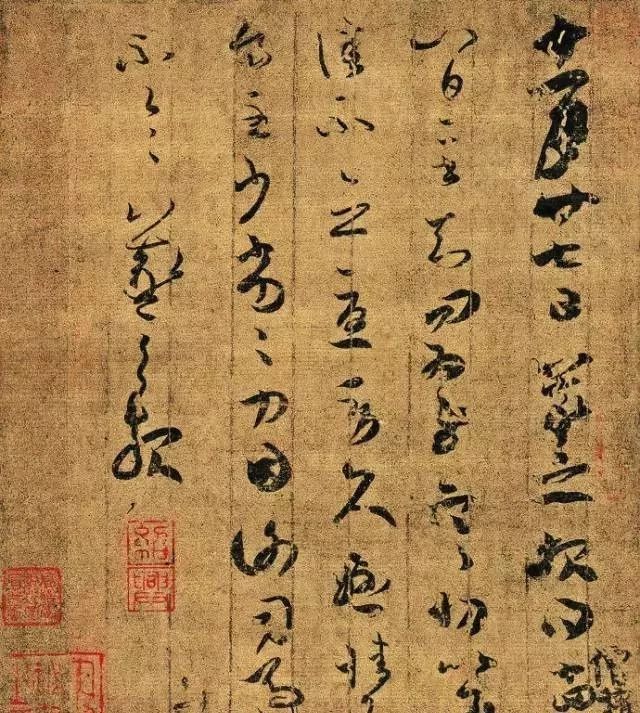 十一月廿七日羲之報得十四
十八日二書知問為慰寒切比各
佳不念憂勞久懸情吾
食至少劣劣力因謝司馬
不一一羲之報
僧權
紹興